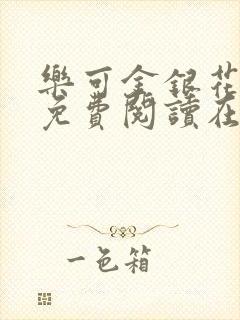 樂可金銀花
免費閱讀在
一色箱